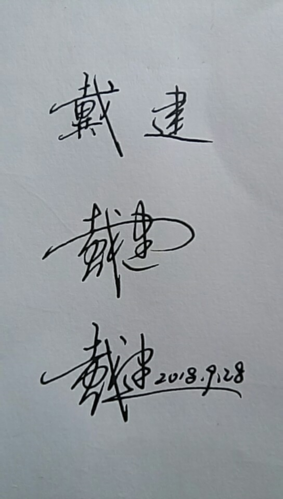 戴建
戴建
戴建 2018.9.28